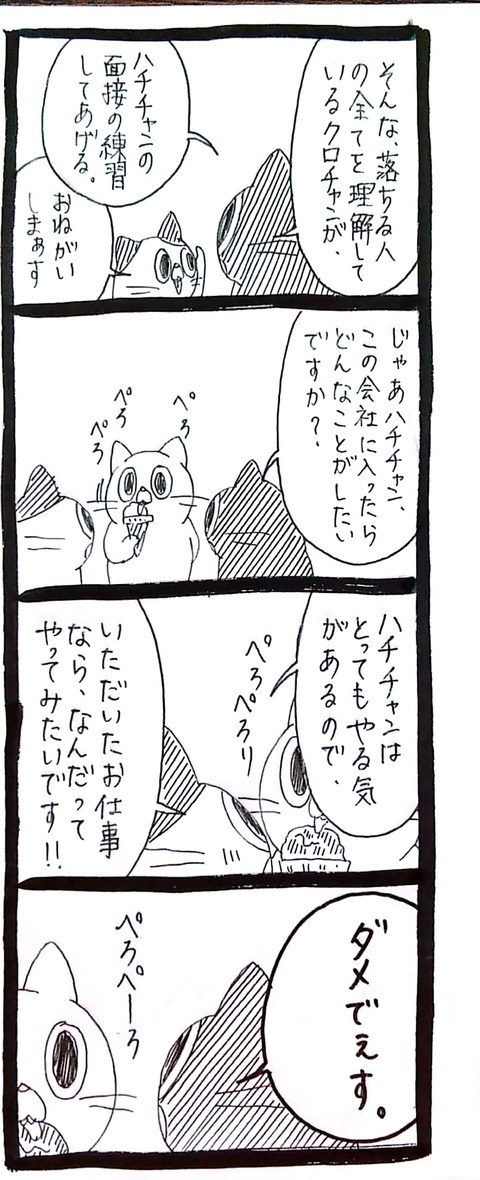 そんな、落ちる人
の全てを理解して
いるクロチャンが、
ハチチャンの
面接の練習
してあげる。
おねがい
しまぁす
じゃあハチチャン、
この会社に入ったら
どんなことがしたい
ですか？
ぺろ
ぺろ
ぺろ
ハチチャンは
とってもやる気
があるので、
ぺろぺろり
いただいたお仕事
なら、なんだって
やってみたいです!!
ダメでぇす。
ぺろぺーろ